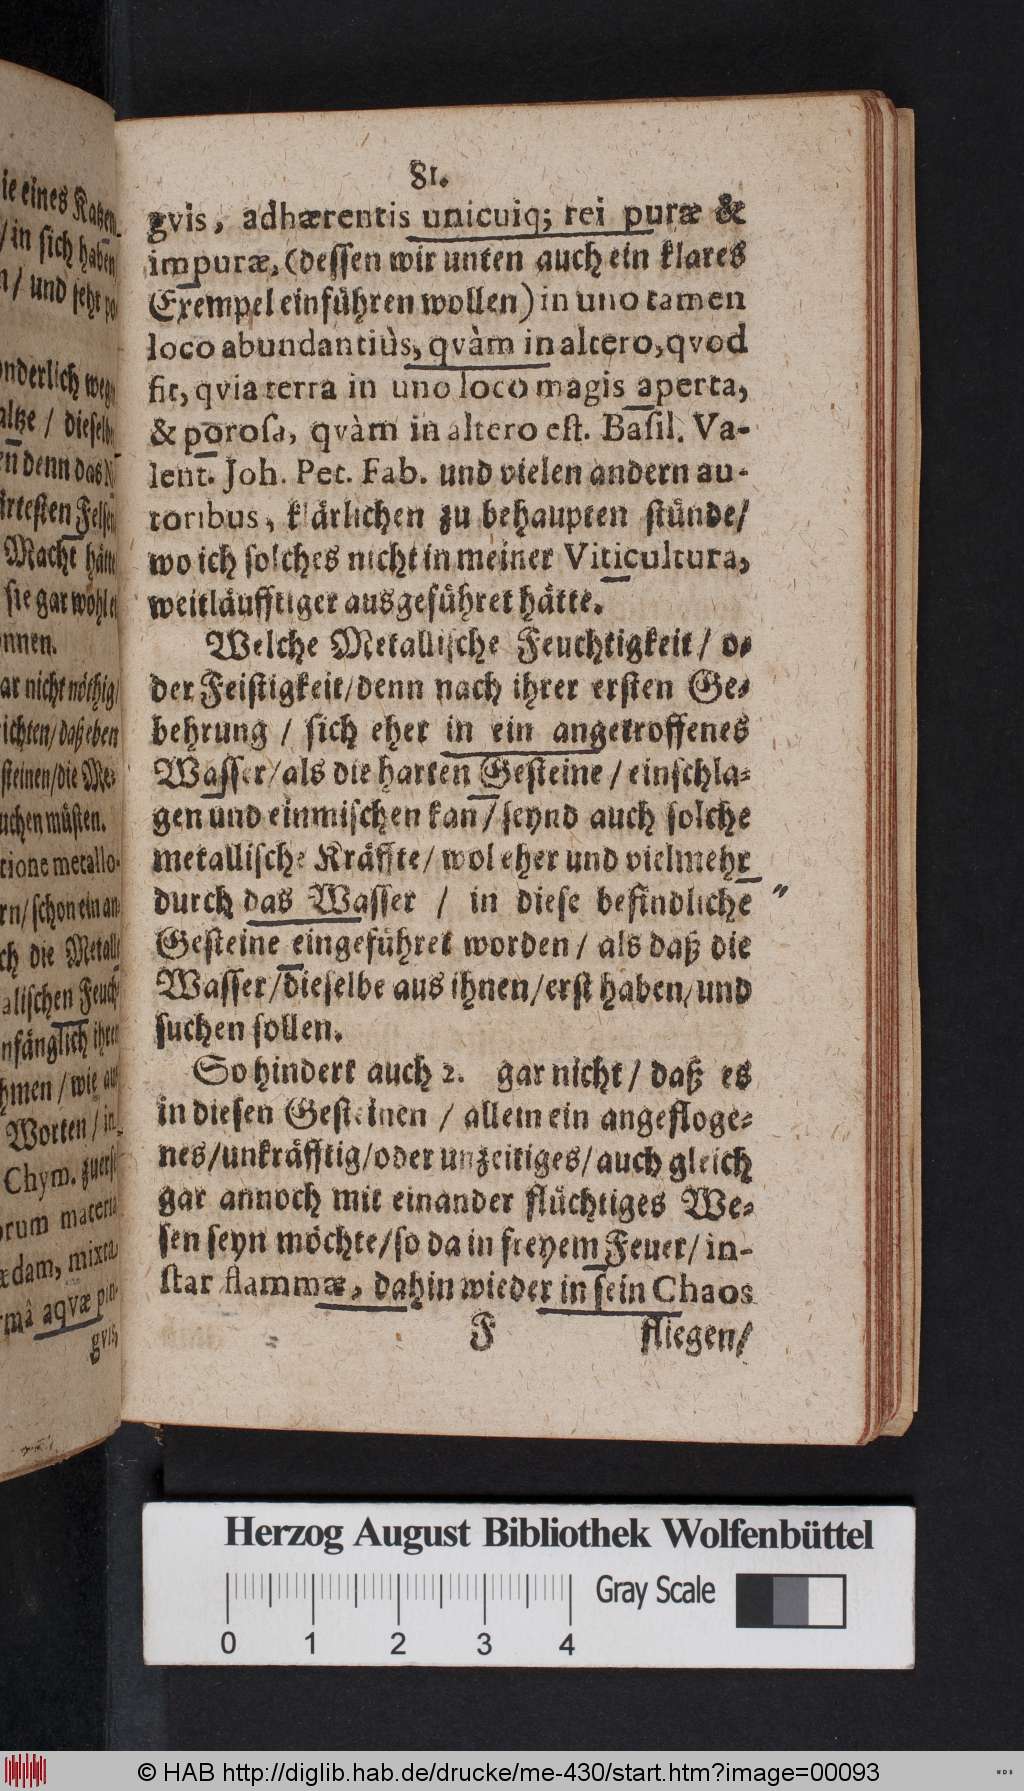 ie eines Katzen-
/ in sich haben
n / und sehr po
onderlich weg
altze / dieselb
en denn das
rtesten Felsen
Macht hätte
sie gar wohl
onnen.
ar nicht nöthig/
ichten/daß eben
steinen/die Me-
uchen müsten.
tione metallo-
rn/schon ein an-
ch die Metalli
alischen Feuch-
nfänglich ihre
hmen / wie au
Worten / in
Chym. zuerst
orum materia
ædam, mixta
rmâ aqvæ pin-
gvis,
81.
gvis, adhærentis unicuiq; rei puræ &
impuræ, (dessen wir unten auch ein klares
Exempel einführen wollen) in uno tamen
loco abundantiùs, qvàm in altero, qvod
fit, qvia terra in uno loco magis aperta,
& porosa, qvàm in altero est. Basil. Va-
lent. Joh. Pet. Fab. und vielen andern au-
toribus, klärlichen zu behaupten stünde/
wo ich solches nicht in meiner Viticultura,
weitläufftiger ausgeführet hätte.
Welche Metallische Feuchtigkeit / o-
der Feistigkeit/denn nach ihrer ersten Ge-
behrung / sich eher in ein angetroffenes
Wasser/als die harten Gesteine / einschla-
gen und einmischen kan / seynd auch solche
metallische Kräffte/ wol eher und vielmehr
durch das Wasser / in diese befindliche "
Gesteine eingeführet worden / als daß die
Wasser/dieselbe aus ihnen/erst haben/und
suchen sollen.
So hindert auch 2. gar nicht / daß es
in diesen Gesteinen / allein ein angefloge-
nes/unkräfftig/oder unzeitiges/ auch gleich
gar annoch mit einander flüchtiges We-
sen seyn möchte/so da in freyem Feuer/ in-
star flammæ, dahin wieder in sein Chaos
F fliegen/
Herzog August Bibliothek Wolfenbüttel
Gray Scale
0 1 2 3 4
© HAB http://diglib.hab.de/drucke/me-430/start.htm?image=00093